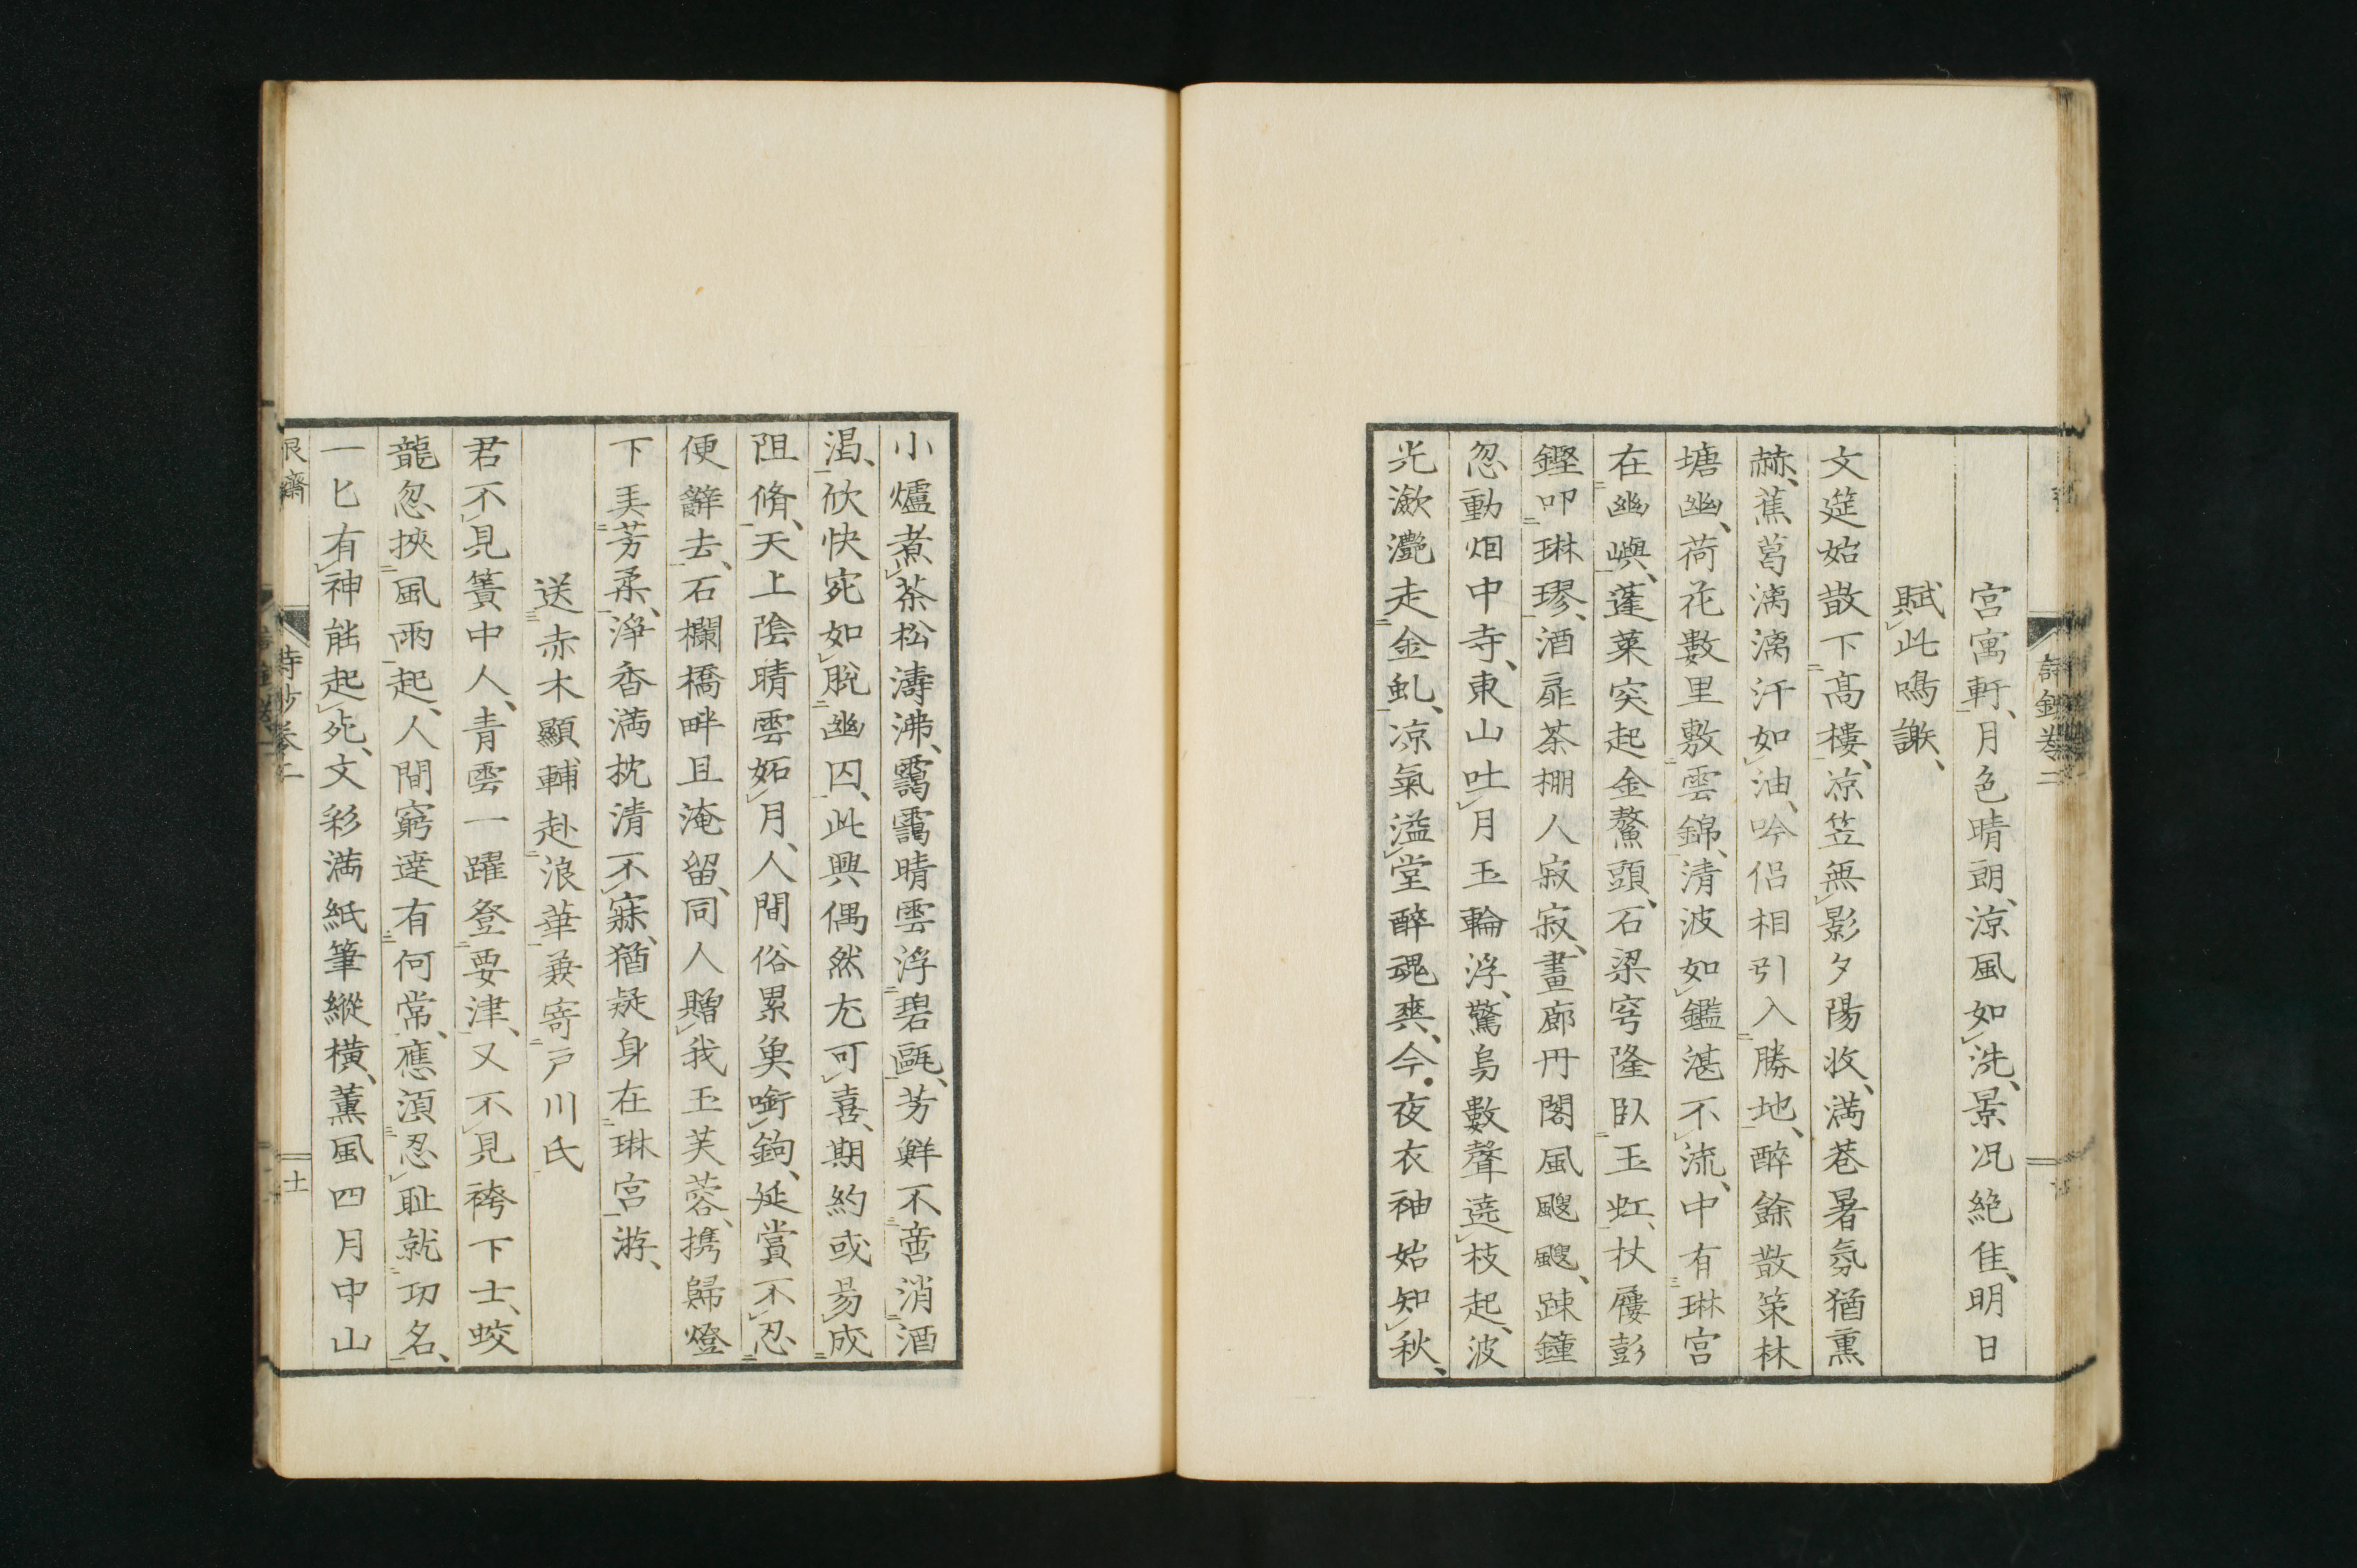 詩鈔卷二
宮寓軒、月色晴朗、涼風如洗、景况絶佳、明日
賦此鳴謝、
文筵始散下髙樓、凉笠無影夕陽收、満巷暑氛猶熏
赫、蕉葛漓漓汗如油、吟侶相引入勝地、醉餘散策林
塘幽、荷花數里敷雲錦、清波如鑑湛不流、中有琳宮
在幽嶼、蓬萊突起金鰲頭、石梁穹隆臥玉虹、杖屨彭
鏗叩琳璆、酒扉茶棚人寂寂、畫廊丹閣風颼颼、踈鐘
忽動烟中寺、東山吐月玉輪浮、驚烏數聲遶枝起、波
光瀲灧走金虬、凉氣溢堂醉魂爽、今夜衣袖始知秋、
小爐煮茶松濤沸、靄靄晴雲浮碧甌、芳鮮不啻消酒
渇、欣快宛如脫幽囚、此興偶然尤可喜、期約或昜成
阻脩、天上陰晴雲妬月、人間俗累奐嘶鉤、延賞不忍
便辭去、石欄橋畔且淹留、同人贈我玉芙蓉、携歸燈
下弄芳柔、淨香満枕清不寐、猶疑身在琳宮游、
送赤木顯輔赴浪華兼寄戸川氏
君不見簀中人、青雲一躍登要津、又不見袴下士、蛟
龍忽挾風雨起、人間窮達有何常、應湏忍耻就功名、
一匕有神能起死、文彩満紙筆縱横、薫風四月中山
艮齋
詩鈔卷二
十一